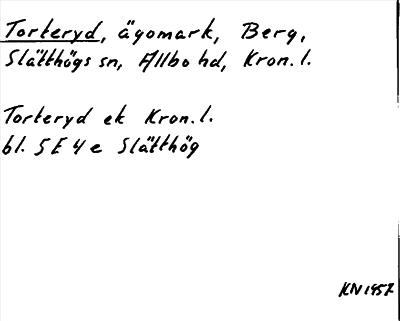 Torteryd, ägomark, Berg,
Slätthögs sn, Allbo hd, Kron. l.
Torteryd ek Kron. l.
bl. 5E4e Slätthög
KN1957